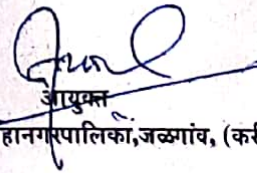 आयुक्त
हानगरपालिका,जळगांव, (कर